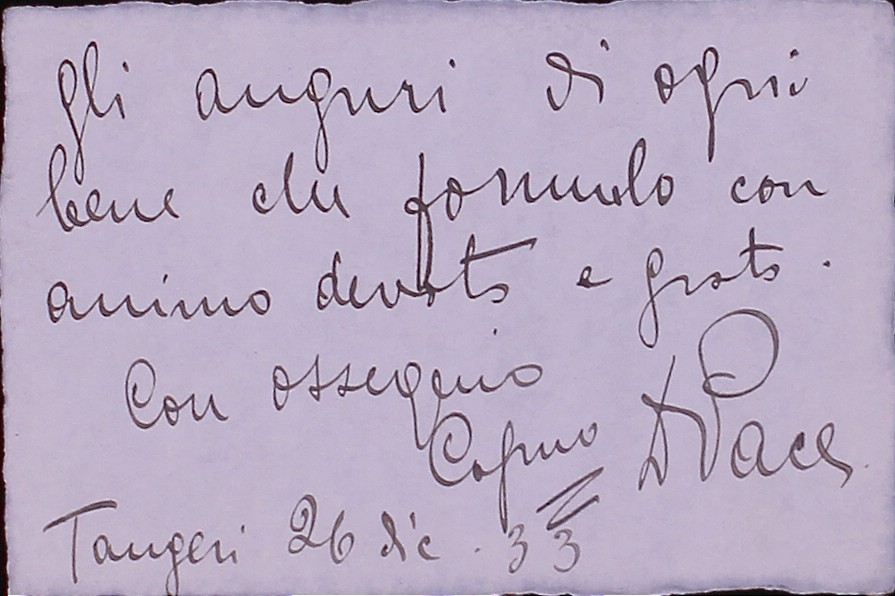 gli auguri di ogni
bene che formulo con
animo devoto e grato.
Con ossequio
D Pace
Tangeri 26 dic. 33